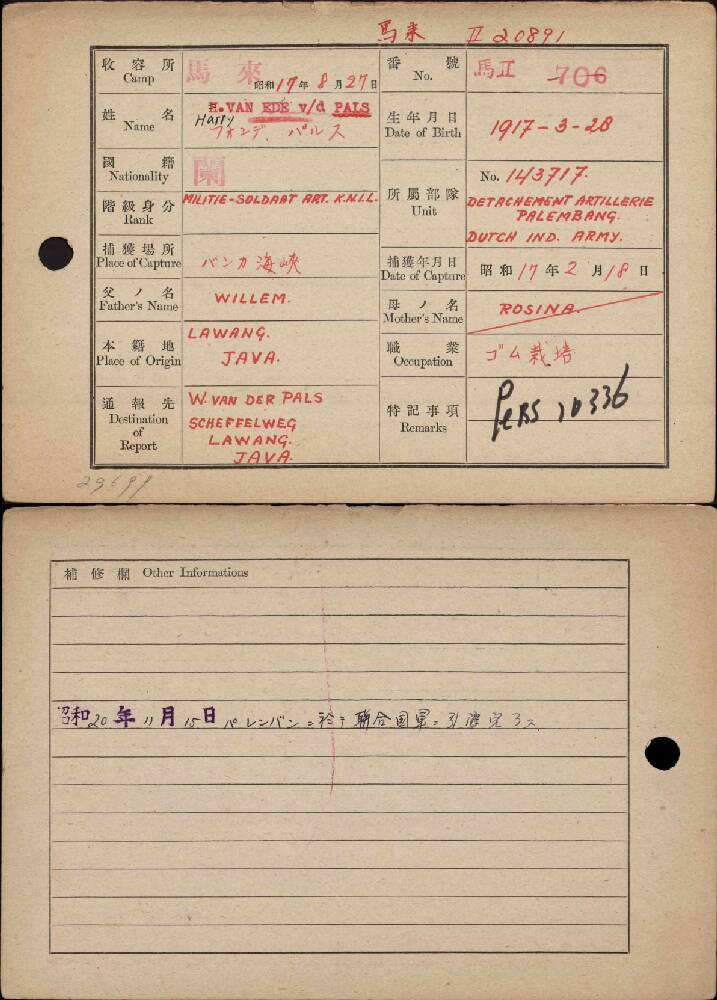 馬来 II 20891
收容所 Camp 馬來 昭和17年8月27日
番號 No. 馬II 706
姓名 Name H.VAN EDE v/d PALS
Harry
フォンデ、パルス
生年月日 Date of Birth 1917-3-28
國籍 Nationality 蘭
階級身分 Rank MILITIE-SOLDAAT ART. K.N.I.L.
所屬部隊 Unit No. 143717.
DETACHEMENT ARTILLERIE
PALEMBANG.
DUTCH IND. ARMY.
捕獲場所 Place of Capture バンカ海峡
捕獲年月日 Date of Capture 昭和17年2月18日
父ノ名 Father's Name WILLEM.
母ノ名 Mother's Name ROSINA.
本籍地 Place of Origin LAWANG.
JAVA.
職業 Occupation ゴム栽培
通報先 Destination of Report W. VAN DER PALS
SCHEFFELWEG
LAWANG.
JAVA.
特記事項 Remarks PeRS 10336
29699
補修欄 Other Informations
昭和20年11月15日パレンバンニ於テ聯合国軍ニ引渡完了ス